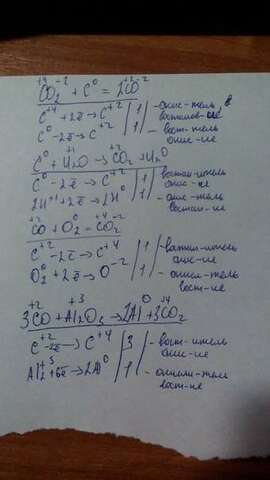 +4 -2 0 +2 -2
CO₂ + C⁰ = 2CO
C⁺⁴ + 2ē → C⁺² | 1 | - окис-тель, в
восстанов-ие
C⁰ - 2ē → C⁺² | 1 | - вост-тель
окис-ие
C⁰ + H₂O → CO₂ + H₂⁰
C⁰ - 2ē → C⁺² | 1 | - восстан-итель
окис-ие
2H⁺¹ + 2ē → 2H⁰ | 1 | - окис-тель
восстан-ие
+2 +4 -2
CO + O₂⁰ = CO₂
C⁺² - 2ē → C⁺⁴ | 1 | - восстан-итель
окис-ие
O₂⁰ + 2ē → O⁻² | 1 | - окисл-тель
вост-ие
+2 +3 0 +4
3CO + Al₂O₃ → 2Al + 3CO₂
C⁺² - 2ē → C⁺⁴ | 3 | - вост-итель
окис-ие
Al₂⁺³ + 6ē → 2Al⁰ | 1 | - окисли-тель
вост-ие